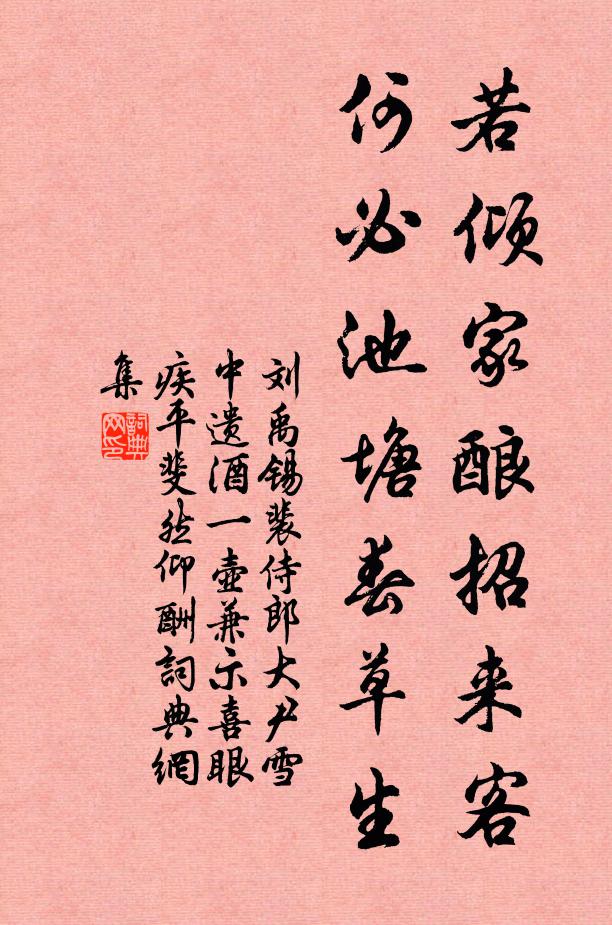 若倾家酿招来客
何必池塘春草生
刘禹锡裴侍郎大尹雪
中遗酒一壶兼示喜眼
疾平斐然仰酬詞典網
集
詞典
网印